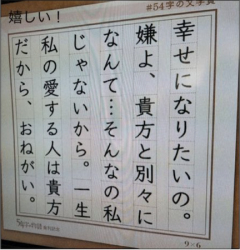 嬉しい！
#54字の文学賞
幸せになりたいの。
嫌よ、貴方と別々に
なんて…そんなの私
じゃないから。一生
私の愛する人は貴方
だから、おねがい。
9×6